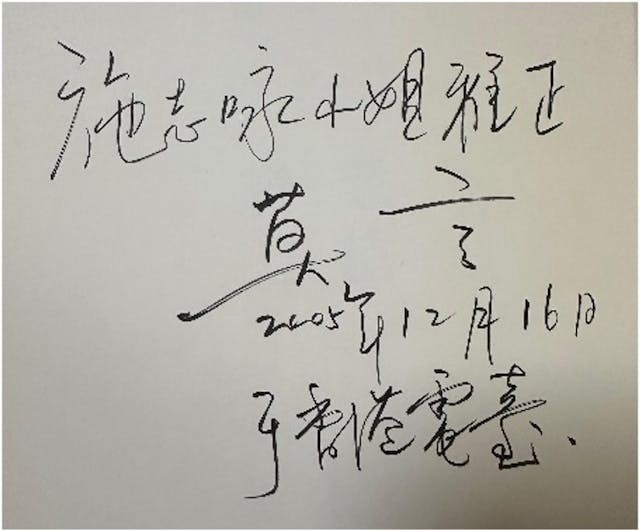 施志咏小姐雅正
莫言
2005年12月16日
于香港電臺、